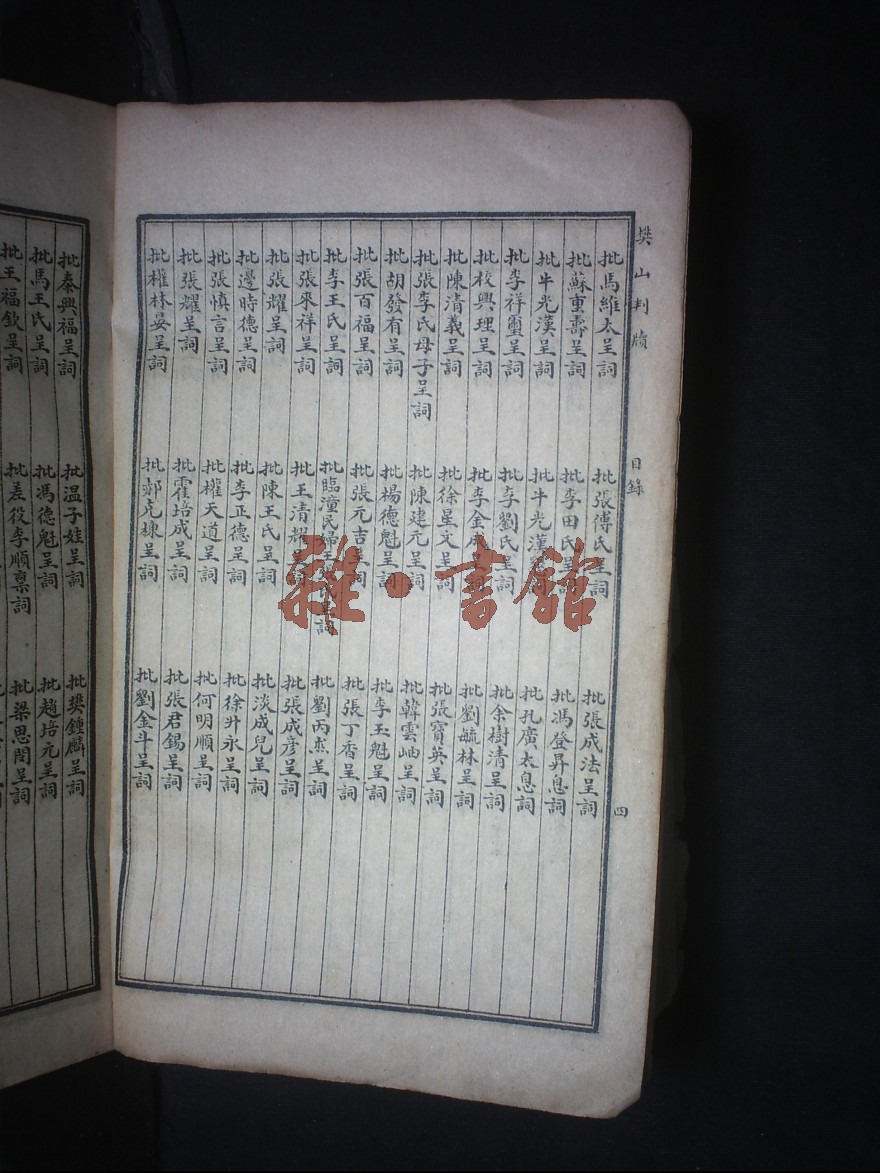 樊山判牘
目錄
四
批馬維太呈詞
批張傅氏呈詞
批張成法呈詞
批蘇重壽呈詞
批李田氏呈詞
批馮登昇息詞
批牛光漢呈詞
批牛光漢呈詞
批孔廣太息詞
批李祥璽呈詞
批李劉氏呈詞
批余樹清呈詞
批校興理呈詞
批李金
批劉毓林呈詞
批陳清義呈詞
批徐星文呈詞
批張寶英呈詞
批張李氏母子呈詞
批陳建元呈詞
批韓雲岫呈詞
批胡發有呈詞
批楊德魁呈詞
批李玉魁呈詞
批張百福呈詞
批張元吉呈詞
批張丁香呈詞
批李王氏呈詞
批臨潼民婦王
批劉丙杰呈詞
批張來祥呈詞
批王清耀呈詞
批張成彥呈詞
批張耀呈詞
批陳王氏呈詞
批淡成兒呈詞
批邊時德呈詞
批李正德呈詞
批徐升永呈詞
批張慎言呈詞
批權天道呈詞
批何明順呈詞
批張耀呈詞
批霍培成呈詞
批張君錫呈詞
批權林晏呈詞
批郝克棟呈詞
批劉金斗呈詞
批秦興福呈詞
批温子娃呈詞
批樊鍾麟呈詞
批馬王氏呈詞
批馮德魁呈詞
批趙培元呈詞
批王福欽呈詞
批差役李順稟詞
批梁思閔呈詞
雜·書館